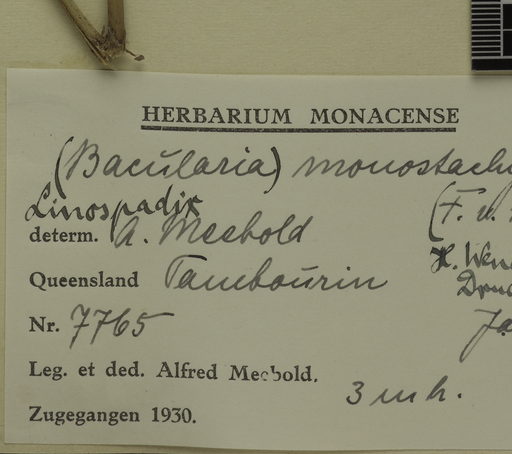 HERBARIUM MONACENSE
(Bacularia) monostachy
Linospadix (F. v.
determ. A. Meebold
H. Wen
Queensland Tambourin
Nr. 7765
Leg. et ded. Alfred Meebold.
3 m h.
Zugegangen 1930.